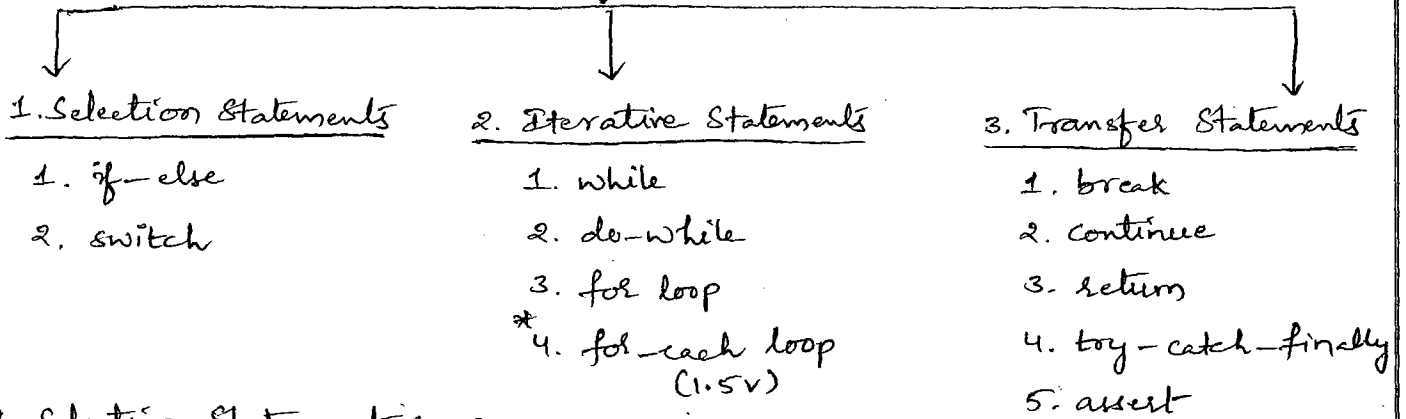 1. Selection Statements
1. if-else
2. switch
2. Iterative Statements
1. while
2. do-while
3. for loop
* 4. for-each loop
(1.5v)
3. Transfer Statements
1. break
2. continue
3. return
4. try-catch-finally
5. assert